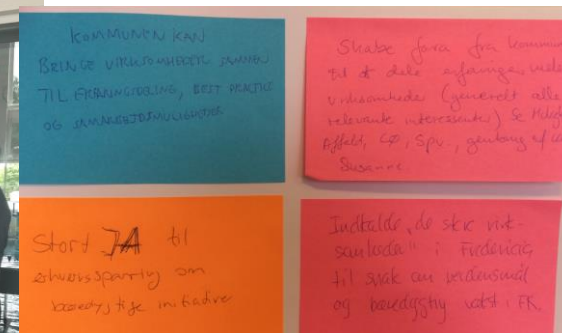 KOMMUNEN KAN
BRINGE VIRKSOMHEDER SAMMEN
TIL ERFARINGSDELING, BEST PRACTICE
OG SAMARBEJDSMULIGHEDER
Skabe fora fra kommun
til at dele erfaringer mellem
virksomheder (generelt alle
relevante interessenter) Se
Affald, CØ, Spv., genbrug
Susanne.
Stort JA til
erhvervssparring om
bæredygtige initiativer
Indkalde "de store virk-
somheder" i Fredericia
til snak om verdensmål
og bæredygtig vækst i FR.